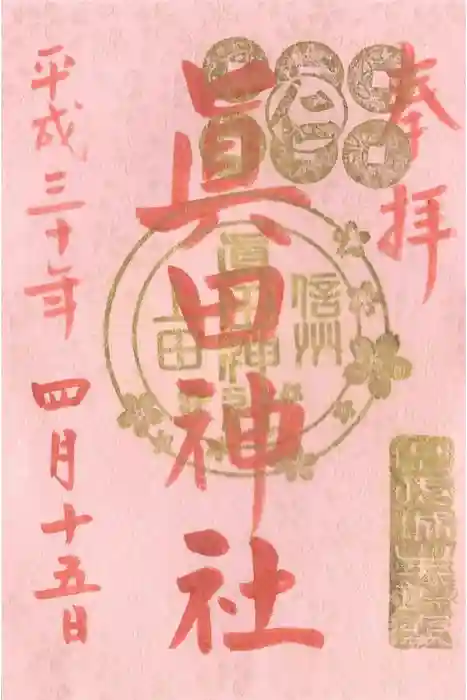 奉拝
眞田神社
平成三十年 四月十五日
信州
眞田神社
上田